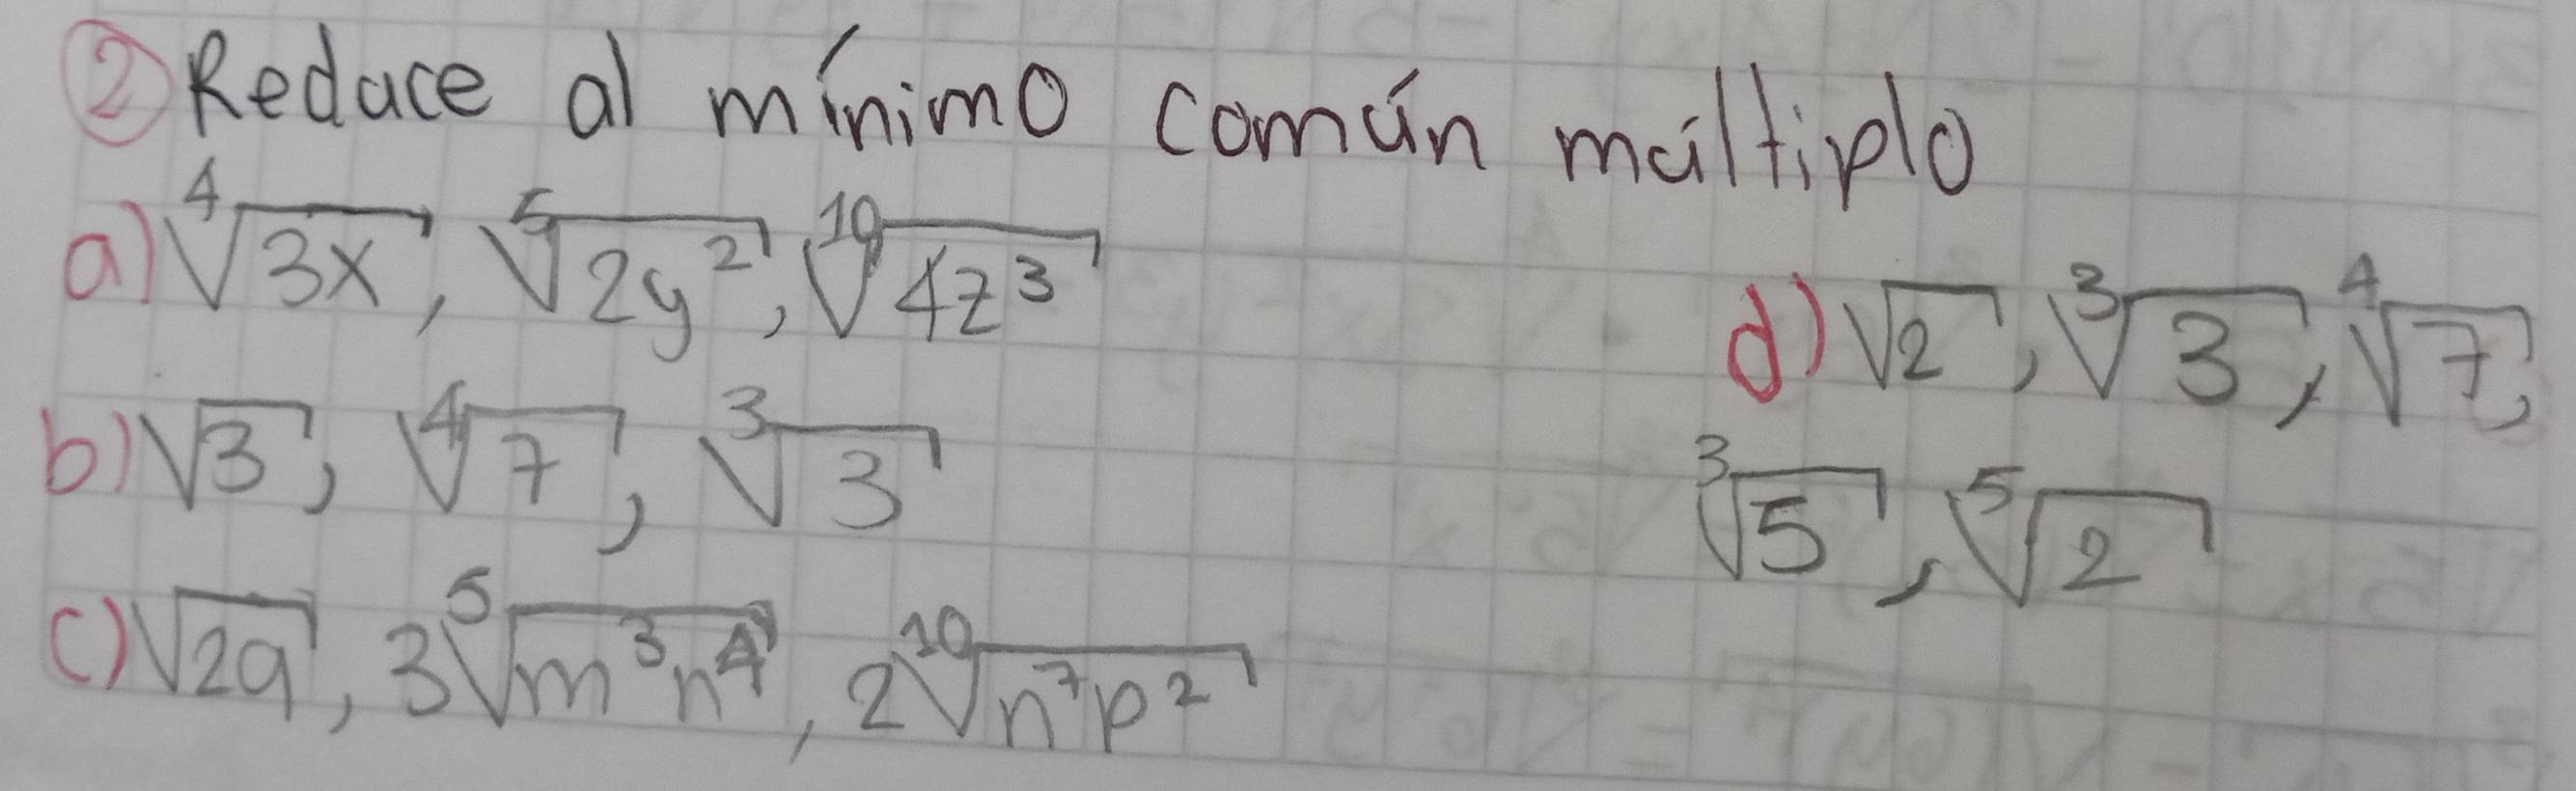 ② Reduce al mínimo común múltiplo
a) ⁴√3x, ⁵√2y², ¹⁰√4z³
b) √3, ⁴√7, ³√3
c) √2a, 3⁵√m³n⁴, 2¹⁰√n⁷p²
d) √2, ³√3, ⁴√7,
³√5, ⁵√2